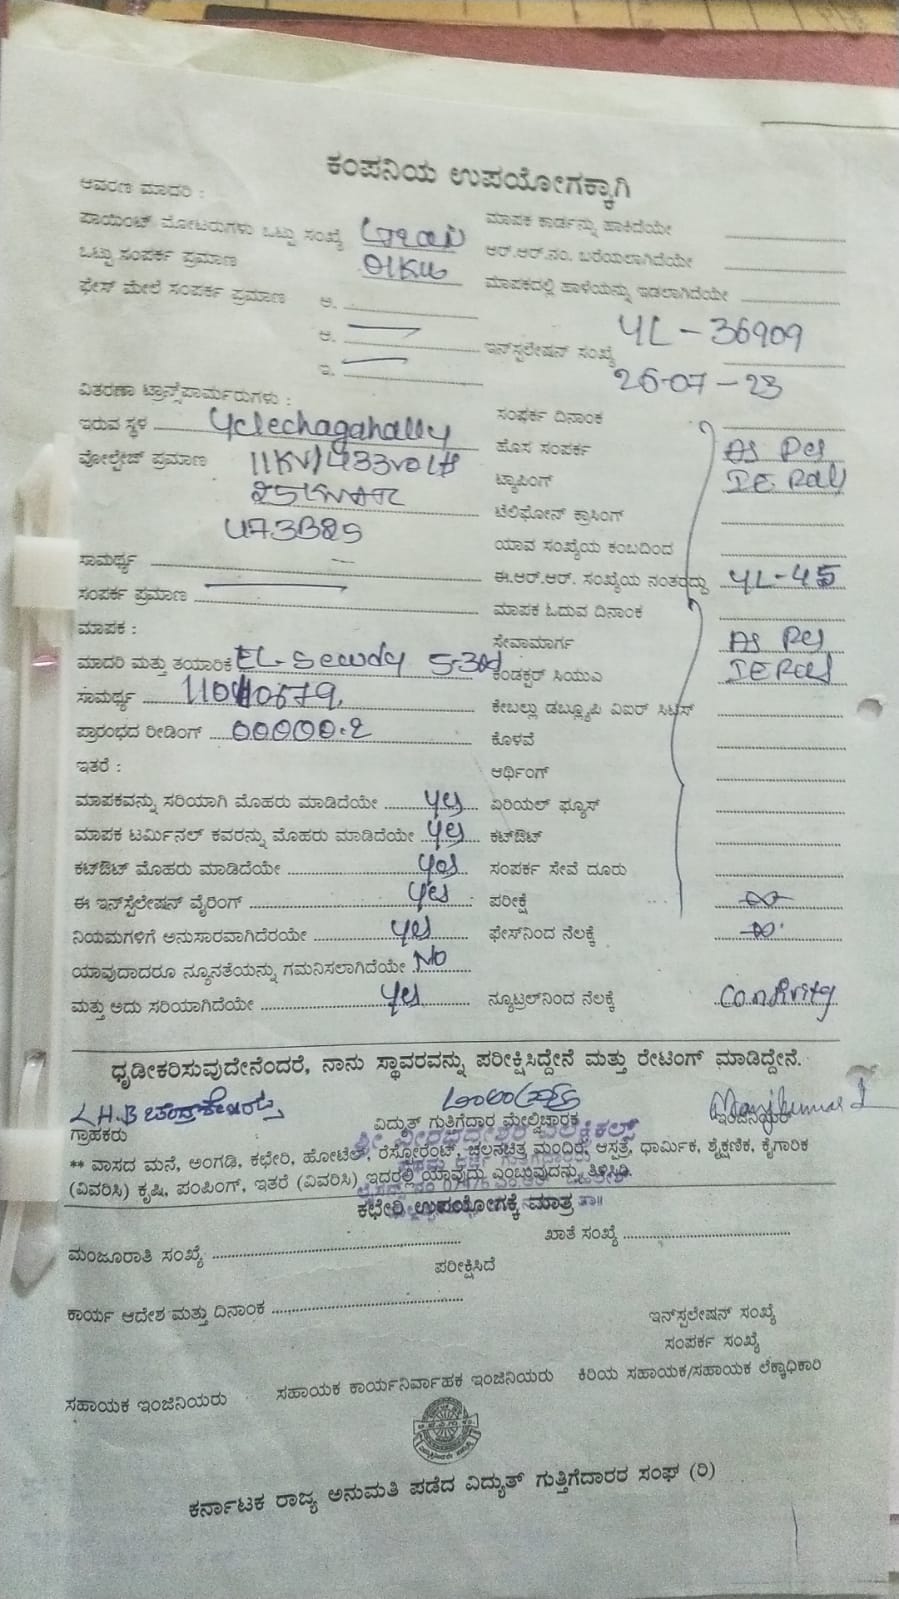 ಕಂಪನಿಯ ಉಪಯೋಗಕ್ಕಾಗಿ
ಆವರಣ ಮಾದರಿ :
ಪಾಯಿಂಟ್ ಮೋಟರುಗಳು ಒಟ್ಟು ಸಂಖ್ಯೆ
ಮಾಪಕ ಕಾರ್ಡನ್ನು ಹಾಕಿದೆಯೇ
ಒಟ್ಟು ಸಂಪರ್ಕ ಪ್ರಮಾಣ 01KW
ಆರ್.ಆರ್.ನಂ. ಬರೆಯಲಾಗಿದೆಯೇ
ಫೇಸ್ ಮೇಲೆ ಸಂಪರ್ಕ ಪ್ರಮಾಣ ಅ.
ಮಾಪಕದಲ್ಲಿ ಹಾಳೆಯನ್ನು ಇಡಲಾಗಿದೆಯೇ
ಆ.
ಇನ್‌ಸ್ಟಲೇಷನ್ ಸಂಖ್ಯೆ YL-36909
ಇ.
26-07-23
ವಿತರಣಾ ಟ್ರಾನ್ಸ್‌ಪಾರ್ಮರುಗಳು :
ಸಂಪರ್ಕ ದಿನಾಂಕ
ಇರುವ ಸ್ಥಳ Yclechagahally
ಹೊಸ ಸಂಪರ್ಕ As Per
ವೋಲ್ಟೇಜ್ ಪ್ರಮಾಣ 11KV/433volt
ಟ್ಯಾಪಿಂಗ್ IE. Rduly
ಟೆಲಿಫೋನ್ ಕ್ರಾಸಿಂಗ್
ಯಾವ ಸಂಖ್ಯೆಯ ಕಂಬದಿಂದ
ಸಾಮರ್ಥ್ಯ
ಈ.ಆರ್.ಆರ್. ಸಂಖ್ಯೆಯ ನಂತರದ್ದು YL-45
ಸಂಪರ್ಕ ಪ್ರಮಾಣ
ಮಾಪಕ ಓದುವ ದಿನಾಂಕ
ಮಾಪಕ :
ಸೇವಾಮಾರ್ಗ As Per
ಮಾದರಿ ಮತ್ತು ತಯಾರಿಕೆ 5-30A
ಕಂಡಕ್ಟರ್ ಸಿಯುಎ
ಸಾಮರ್ಥ್ಯ
ಕೇಬಲ್ಲು ಡಬ್ಲ್ಯೂಪಿ ವಿಐರ್ ಸಿಟಸ್
ಪ್ರಾರಂಭದ ರೀಡಿಂಗ್ 00000.2
ಕೊಳವೆ
ಇತರೆ :
ಆರ್ಥಿಂಗ್
ಮಾಪಕವನ್ನು ಸರಿಯಾಗಿ ಮೊಹರು ಮಾಡಿದೆಯೇ yes
ಏರಿಯಲ್ ಫ್ಯೂಸ್
ಮಾಪಕ ಟರ್ಮಿನಲ್ ಕವರನ್ನು ಮೊಹರು ಮಾಡಿದೆಯೇ yes
ಕಟ್‌ಔಟ್
ಕಟ್‌ಔಟ್ ಮೊಹರು ಮಾಡಿದೆಯೇ yes
ಸಂಪರ್ಕ ಸೇವೆ ದೂರು
ಈ ಇನ್‌ಸ್ಟೆಲೇಷನ್ ವೈರಿಂಗ್ yes
ಪರೀಕ್ಷೆ
ನಿಯಮಗಳಿಗೆ ಅನುಸಾರವಾಗಿದೆರಯೇ yes
ಫೇಸ್‌ನಿಂದ ನೆಲಕ್ಕೆ
ಯಾವುದಾದರೂ ನ್ಯೂನತೆಯನ್ನು ಗಮನಿಸಲಾಗಿದೆಯೇ No
ಮತ್ತು ಅದು ಸರಿಯಾಗಿದೆಯೇ yes
ನ್ಯೂಟ್ರಲ್‌ನಿಂದ ನೆಲಕ್ಕೆ
ಧೃಡೀಕರಿಸುವುದೇನೆಂದರೆ, ನಾನು ಸ್ಥಾವರವನ್ನು ಪರೀಕ್ಷಿಸಿದ್ದೇನೆ ಮತ್ತು ರೇಟಿಂಗ್ ಮಾಡಿದ್ದೇನೆ.
ಗ್ರಾಹಕರು
ವಿದ್ಯುತ್ ಗುತ್ತಿಗೆದಾರ ಮೇಲ್ವಿಚಾರಕ
ಇಂಜಿನಿಯರ್
** ವಾಸದ ಮನೆ, ಅಂಗಡಿ, ಕಛೇರಿ, ಹೋಟೆಲ್, ರೆಸ್ಟೋರೆಂಟ್, ಚಲನಚಿತ್ರ ಮಂದಿರ, ಆಸ್ಪತ್ರೆ, ಧಾರ್ಮಿಕ, ಶೈಕ್ಷಣಿಕ, ಕೈಗಾರಿಕ
(ವಿವರಿಸಿ) ಕೃಷಿ, ಪಂಪಿಂಗ್, ಇತರೆ (ವಿವರಿಸಿ) ಇದರಲ್ಲಿ ಯಾವುದು ಎಂಬುವುದನ್ನು ತಿಳಿಸಿರಿ.
ಕಛೇರಿ ಉಪಯೋಗಕ್ಕೆ ಮಾತ್ರ
ಮಂಜೂರಾತಿ ಸಂಖ್ಯೆ
ಖಾತೆ ಸಂಖ್ಯೆ
ಪರೀಕ್ಷಿಸಿದೆ
ಕಾರ್ಯ ಆದೇಶ ಮತ್ತು ದಿನಾಂಕ
ಇನ್‌ಸ್ಟಲೇಷನ್ ಸಂಖ್ಯೆ
ಸಂಪರ್ಕ ಸಂಖ್ಯೆ
ಸಹಾಯಕ ಇಂಜಿನಿಯರು
ಸಹಾಯಕ ಕಾರ್ಯನಿರ್ವಾಹಕ ಇಂಜಿನಿಯರು
ಕಿರಿಯ ಸಹಾಯಕ/ಸಹಾಯಕ ಲೆಕ್ಕಾಧಿಕಾರಿ
ಕರ್ನಾಟಕ ರಾಜ್ಯ ಅನುಮತಿ ಪಡೆದ ವಿದ್ಯುತ್ ಗುತ್ತಿಗೆದಾರರ ಸಂಘ (ರಿ)